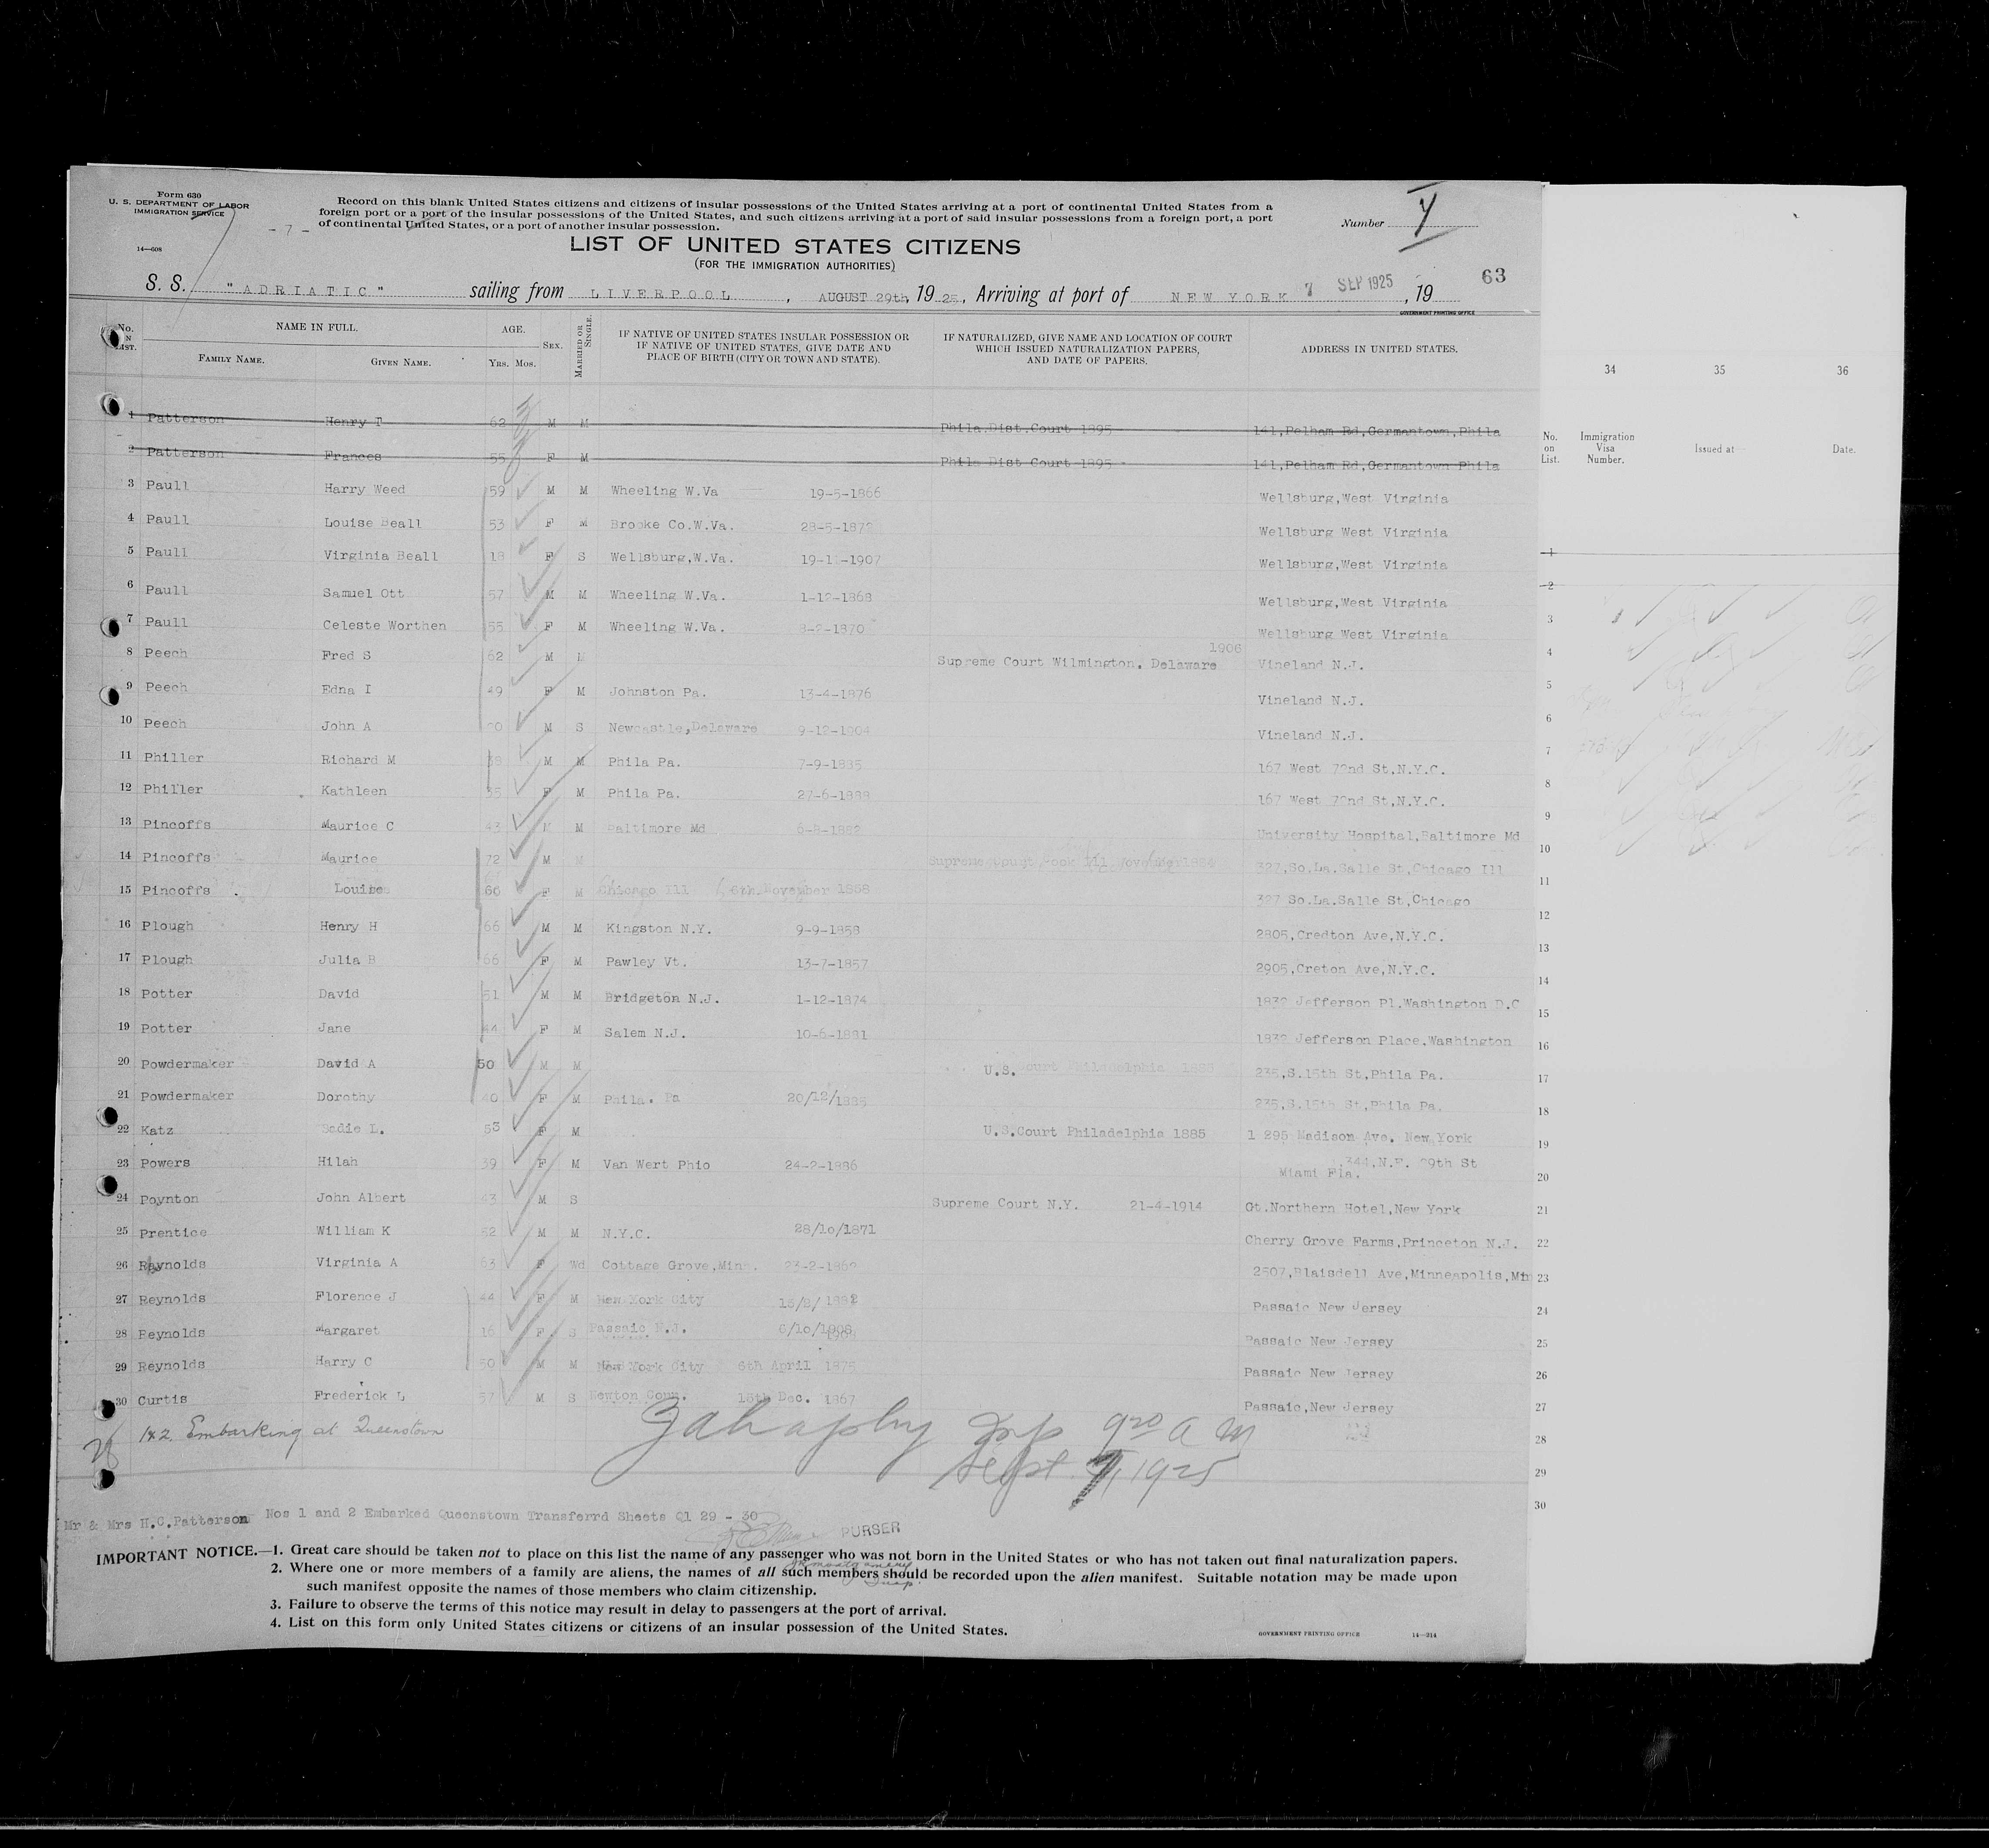 Form 630
U. S. DEPARTMENT OF LABOR
IMMIGRATION SERVICE
- 7 -
14—608
Record on this blank United States citizens and citizens of insular possessions of the United States arriving at a port of continental United States from a
foreign port or a port of the insular possessions of the United States, and such citizens arriving at a port of said insular possessions from a foreign port, a port
of continental United States, or a port of another insular possession.
Number
LIST OF UNITED STATES CITIZENS
(FOR THE IMMIGRATION AUTHORITIES)
S. S. "ADRIATIC" sailing from LIVERPOOL, AUGUST 29th, 1925, Arriving at port of NEW YORK 7 SEP 1925, 19
63
GOVERNMENT PRINTING OFFICE
No. ON LIST. NAME IN FULL. FAMILY NAME. GIVEN NAME. AGE. Yrs. Mos. SEX. MARRIED OR SINGLE. IF NATIVE OF UNITED STATES INSULAR POSSESSION OR IF NATIVE OF UNITED STATES, GIVE DATE AND PLACE OF BIRTH (CITY OR TOWN AND STATE). IF NATURALIZED, GIVE NAME AND LOCATION OF COURT WHICH ISSUED NATURALIZATION PAPERS, AND DATE OF PAPERS. ADDRESS IN UNITED STATES.
34 35 36
No. on List. Immigration Visa Number. Issued at Date.
1 Patterson Henry T 62 M M Phila.Dist.Court 1895 141,Pelham Rd,Germantown,Phila
2 Patterson Frances 55 F M Phila Dist Court 1895 141,Pelham Rd,Germantown Phila
3 Paull Harry Weed 59 M M Wheeling W.Va 19-5-1866 Wellsburg,West Virginia
4 Paull Louise Beall 53 F M Brooke Co.W.Va. 28-5-1872 Wellsburg West Virginia
5 Paull Virginia Beall 18 F S Wellsburg,W.Va. 19-11-1907 Wellsburg,West Virginia
6 Paull Samuel Ott 57 M M Wheeling W.Va. 1-12-1868 Wellsburg,West Virginia
7 Paull Celeste Worthen 55 F M Wheeling W.Va. 8-2-1870 Wellsburg West Virginia
8 Peech Fred S 62 M M Supreme Court Wilmington. Delaware 1906 Vineland N.J.
9 Peech Edna I 49 F M Johnston Pa. 13-4-1876 Vineland N.J.
10 Peech John A 20 M S Newcastle,Delaware 9-12-1904 Vineland N.J.
11 Philler Richard M 38 M M Phila Pa. 7-9-1885 167 West 72nd St,N.Y.C.
12 Philler Kathleen 35 F M Phila Pa. 27-6-1888 167 West 72nd St,N.Y.C.
13 Pincoffs Maurice C 43 M M Baltimore Md 6-8-1882 University Hospital,Baltimore Md
14 Pincoffs Maurice 72 M M Supreme Court Cook Ill November 327,So.La.Salle St,Chicago Ill
15 Pincoffs Louise 60 F M Chicago Ill 6th.November 1868 327 So.La.Salle St,Chicago
16 Plough Henry H 66 M M Kingston N.Y. 9-9-1858 2805,Credton Ave,N.Y.C.
17 Plough Julia B 66 F M Pawley Vt. 13-7-1857 2905,Creton Ave,N.Y.C.
18 Potter David 51 M M Bridgeton N.J. 1-12-1874 1832 Jefferson Pl.Washington D.C
19 Potter Jane 44 F M Salem N.J. 10-6-1881 1832 Jefferson Place,Washington
20 Powdermaker David A 50 M M U.S. Court Philadelphia 1885 235,S.15th St,Phila Pa.
21 Powdermaker Dorothy 40 F M Phila. Pa 20/12/1885 235,S.15th St,Phila Pa.
22 Katz Sadie L. 53 F M U.S.Court Philadelphia 1885 1 295 Madison Ave. New York
23 Powers Hilah 39 F M Van Wert Phio 24-2-1886 344,N.E. 29th St Miami Fla.
24 Poynton John Albert 43 M S Supreme Court N.Y. 21-4-1914 Gt.Northern Hotel,New York
25 Prentice William K 52 M M N.Y.C. 28/10/1871 Cherry Grove Farms,Princeton N.J.
26 Raynolds Virginia A 63 F Wd Cottage Grove,Minn. 23-2-1862 2507,Blaisdell Ave,Minneapolis,Min
27 Reynolds Florence J 44 F M New York City 15/2/1882 Passaic New Jersey
28 Reynolds Margaret 16 F S Passaic N.J. 6/10/1908 Passaic New Jersey
29 Reynolds Harry C 50 M M New York City 6th April 1875 Passaic New Jersey
30 Curtis Frederick L 57 M S Newton Conn. 15th Dec. 1867 Passaic,New Jersey
1
2
3
4
5
6
7
8
9
10
11
12
13
14
15
16
17
18
19
20
21
22
23
24
25
26
27
28
29
30
1&2. Embarking at Queenstown
Insp 9 20 a m
Sept. 7, 1925
Mr & Mrs H.C.Patterson Nos 1 and 2 Embarked Queenstown Transferrd Sheets Q1 29 - 30
PURSER
IMPORTANT NOTICE.—1. Great care should be taken not to place on this list the name of any passenger who was not born in the United States or who has not taken out final naturalization papers.
2. Where one or more members of a family are aliens, the names of all such members should be recorded upon the alien manifest. Suitable notation may be made upon
such manifest opposite the names of those members who claim citizenship.
3. Failure to observe the terms of this notice may result in delay to passengers at the port of arrival.
4. List on this form only United States citizens or citizens of an insular possession of the United States.
GOVERNMENT PRINTING OFFICE 14—214